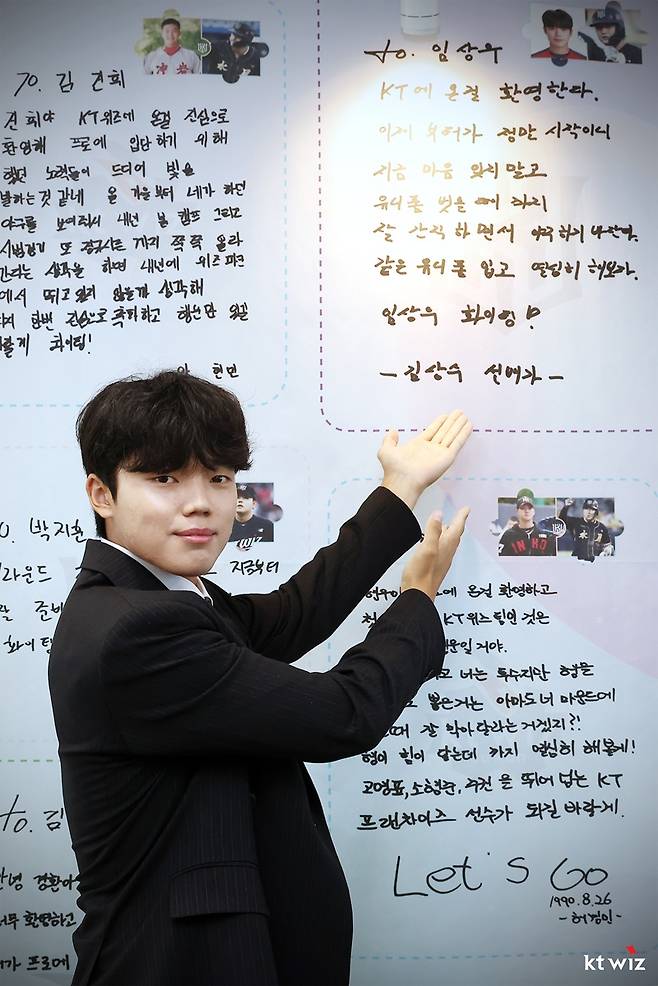 to. 김 건희
건희야 KT위즈에 온걸 진심으로
환영해 프로에 입단하기 위해
했던 노력들이 드디어 빛을
발하는것 같네 올 가을부터 네가 하던
야구를 보여줘서 내년 봄 캠프 그리고
시범경기 또 정규시즌 까지 쭉 쭉 올라
간다는 생각을 하면 내년에 위즈 파크
에서 뛰고 있지 않을까 생각해
다시 한번 진심으로 축하하고 행운만
화이팅!
현민
to. 임상우
KT에 온걸 환영한다.
이제 부터가 정말 시작이니
지금 마음 잊지 말고
유니폼 벗을 때 까지
잘 간직 하면서 야구 하기 바란다.
같은 유니폼 입고 열심히 해보자.
임상우 화이팅!
- 김상수 선배가 -
to. 박지훈
라운드 지금부터
준비
화이팅
온걸 환영하고
KT위즈 팀인 것은
행운일 거야.
너는 투수지만 형을
뽑은거는 아마도 너 마운드에
때 잘 막아달라는 거겠지?!
형이 힘이 닿는데 까지 열심히 해볼게!
고영표, 소형준, 주권 을 뛰어 넘는 KT
프랜차이즈 선수가 되길 바랄게.
Let's Go
1990.8.26
- 허경민 -
to. 김
안녕 경환아
너무 환영하고
프로에
INHO
kt wiz